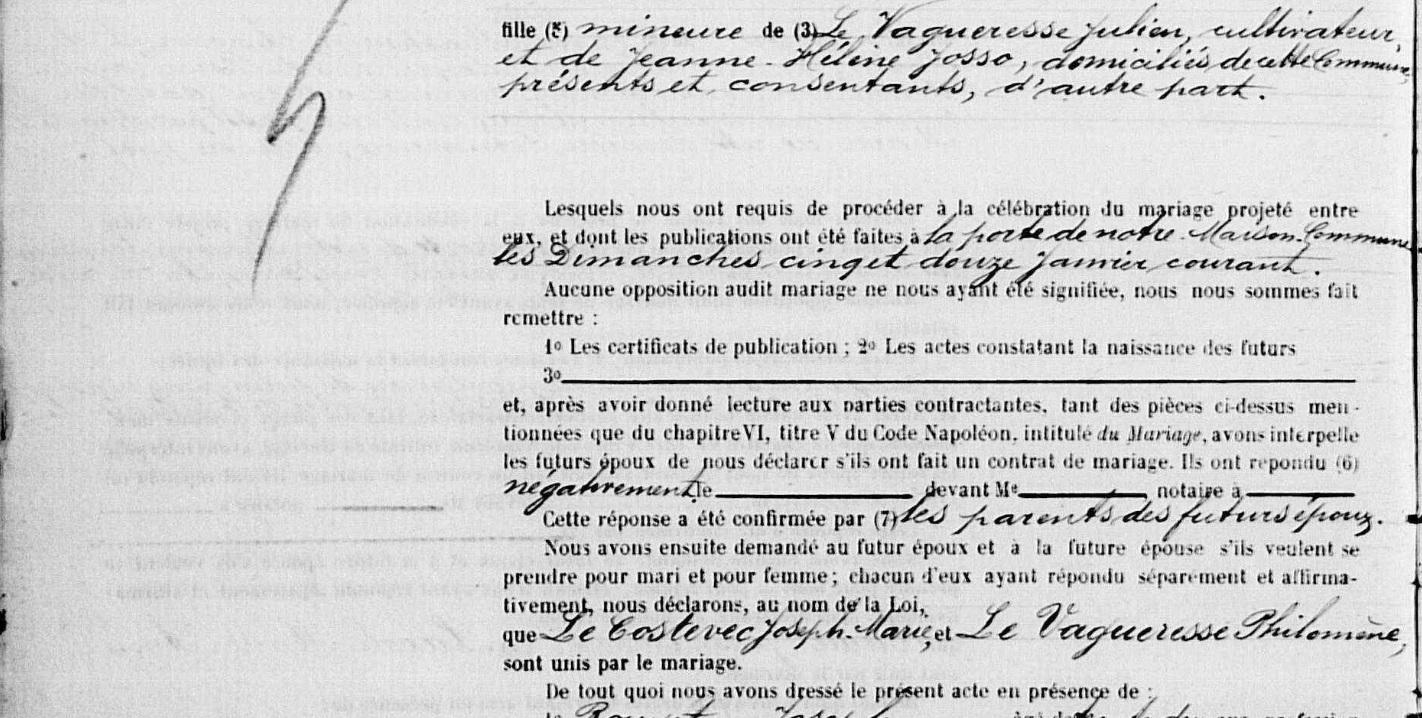 fille (5) mineure de (3) Le Vagueresse Julien, cultivateur,
et de Jeanne-Hélène Josso, domiciliés de cette Commune,
présents et consentants, d'autre part.
Lesquels nous ont requis de procéder à la célébration du mariage projeté entre
eux, et dont les publications ont été faites à la porte de notre Maison Commune
les Dimanches cinq et douze Janvier courant.
Aucune opposition audit mariage ne nous ayant été signifiée, nous nous sommes fait
remettre :
1o Les certificats de publication ; 2o Les actes constatant la naissance des futurs
3o
et, après avoir donné lecture aux parties contractantes, tant des pièces ci-dessus men-
tionnées que du chapitre VI, titre V du Code Napoléon, intitulé du Mariage, avons interpelle
les futurs époux de nous déclarer s'ils ont fait un contrat de mariage. Ils ont repondu (6)
négativement, le devant Me notaire à
Cette réponse a été confirmée par (7) les parents des futurs époux.
Nous avons ensuite demandé au futur époux et à la future épouse s'ils veulent se
prendre pour mari et pour femme ; chacun d'eux ayant répondu séparément et affirma-
tivement, nous déclarons, au nom de la Loi,
que Le Costevec Joseph-Marie, et Le Vagueresse Philomène,
sont unis par le mariage.
De tout quoi nous avons dressé le présent acte en présence de :
1o Joseph